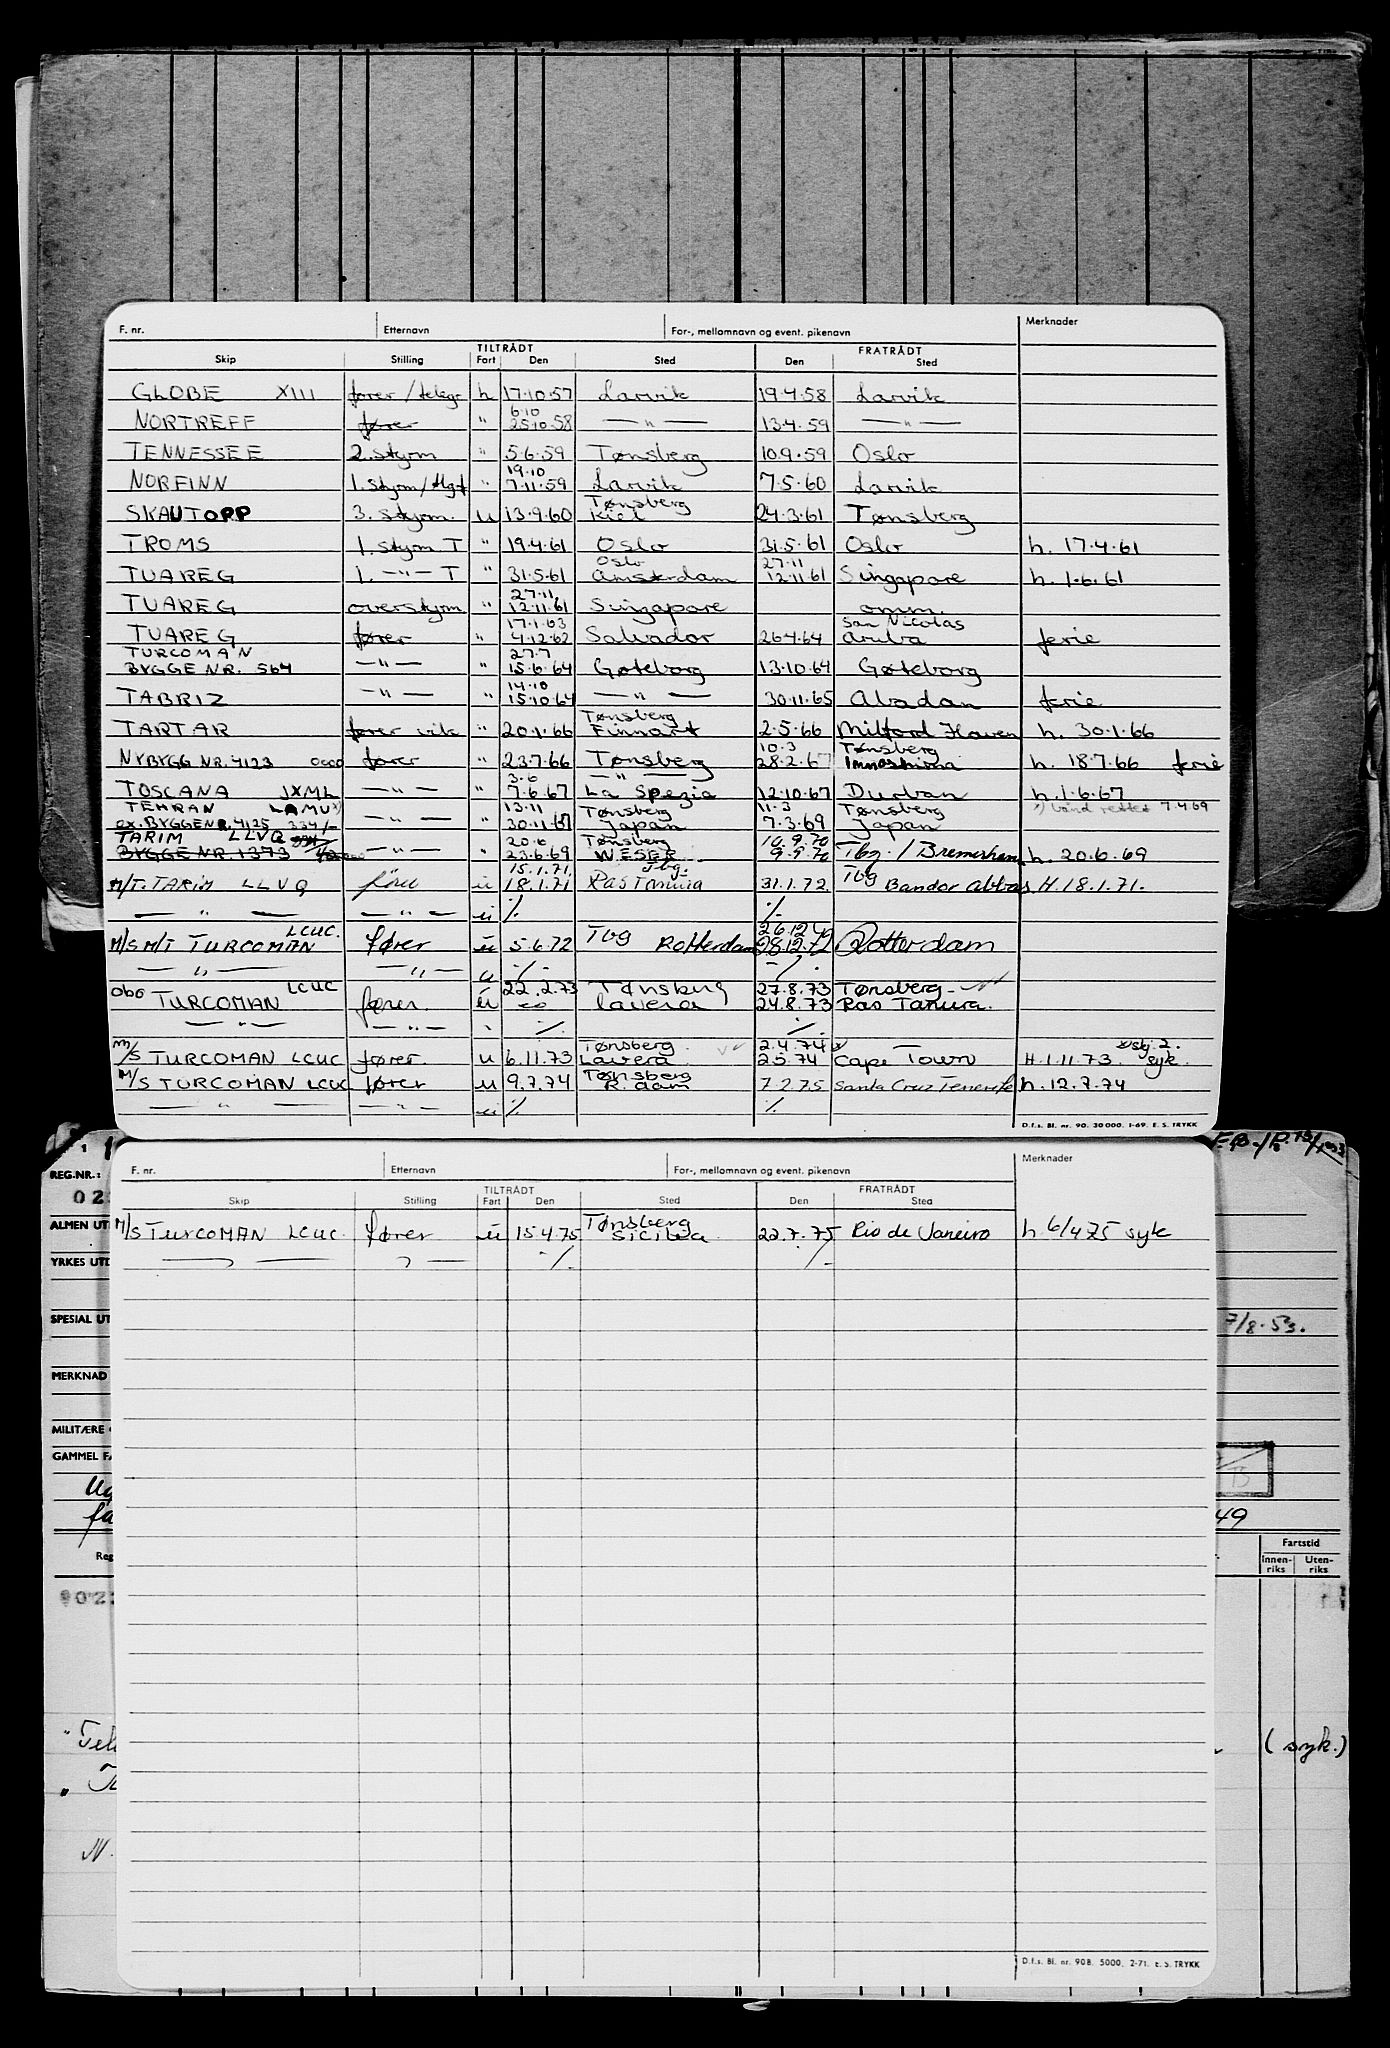 F. nr. Etternavn For-, mellomnavn og event. pikenavn Merknader
TILTRÅDT FRATRÅDT
Skip Stilling Fart Den Sted Den Sted
GLOBE XIII fører/telegr h 17.10.57 Larvik 19.4.58 Larvik
6.10
NORTREFF fører " 25.10.58 — " — 13.4.59 — " —
TENNESSEE 2. styrm " 5.6.59 Tønsberg 10.9.59 Oslo
19.10
NORFINN 1. styrm/tlgf " 7.11.59 Larvik 7.5.60 Larvik
Tønsberg
SKAUTOPP 3. styrm. u 13.9.60 Kiel 24.3.61 Tønsberg
TROMS 1. styrm T " 19.4.61 Oslo 31.5.61 Oslo h. 17.4.61
Oslo 27.11
TUAREG 1. —"— T " 31.5.61 Amsterdam 12.11.61 Singapore h. 1.6.61
27.11
TUAREG overstyrm " 12.11.61 Singapore omm.
17.1.63 San Nicolas
TUAREG fører " 4.12.62 Salvador 26.4.64 Aruba ferie
TURCOMAN 27.7
BYGGE NR. 564 —"— " 15.6.64 Gøteborg 13.10.64 Gøteborg
14.10
TABRIZ —"— " 15.10.64 — " — 30.11.65 Abadan ferie
Tønsberg
TARTAR fører vik " 20.1.66 Finnart 2.5.66 Milford Haven h. 30.1.66
10.3 Tønsberg
NYBYGG NR. 4123 0000 fører " 23.7.66 Tønsberg 28.2.67 Innoshima h. 18.7.66 ferie
3.6 — " —
TOSCANA JXML —"— " 7.6.67 La Spezia 12.10.67 Durban h. 1.6.67
TEHRAN LAMU 13.11 Tønsberg 11.3 Tønsberg 7.4.69
ex. BYGGENR. 4125 334/- —"— " 30.11.67 Japan 7.3.69 Japan
TARIM LLVQ 20.6 Tønsberg 10.9.70
BYGGE NR. 1373 —"— " 23.6.69 WESER 9.9.70 Tbg. / Bremerhaven h. 20.6.69
15.1.71 Tbg. Tbg
M/T. TARIM LLVQ fører u 18.1.71 Ras Tanura 31.1.72 Bandar Abbas H. 18.1.71.
— " — — " — u ·/. ·/.
LCUC. 26.12.72
M/S M/T TURCOMAN fører u 5.6.72 Tbg Rotterdam 28.12.72 Rotterdam
— " — — " — u -/- -/-
LCUC 22.2.73 Tønsberg 27.8.73 Tønsberg
obo TURCOMAN fører. u Lavera 24.8.73 Ras Tanura.
— " — — " — ·/. ·/.
Tønsberg 2.4.74
M/S TURCOMAN LCUC fører. u 6.11.73 Lavera 2.5.74 Cape Town H. 1.11.73. syk.
Tønsberg
M/S TURCOMAN LCUC fører u 9.7.74 R.dam 7.2.75 Santa Cruz Tenerife h. 12.7.74
— " — — " — u ·/. ·/.
D.f.s. Bl. nr. 90. 30 000. 1-69. E. S. TRYKK
REG.NR.: F. nr. Etternavn For-, mellomnavn og event. pikenavn Merknader
02
TILTRÅDT FRATRÅDT
Skip Stilling Fart Den Sted Den Sted
ALMEN UT
Tønsberg
M/S TURCOMAN LCUC. fører u 15.4.75 Sicilia 22.7.75 Rio de Janeiro h 6/4 75 syk
YRKES UTD
·/. ·/-
SPESIAL UT 7/8.53.
MERKNAD
MILITÆRE
GAMMEL FA
49
Fartstid
Reg Innen-riks Uten-riks
(syk.)
D.f.s. Bl. nr. 90B. 5000. 2-71. E. S. TRYKK